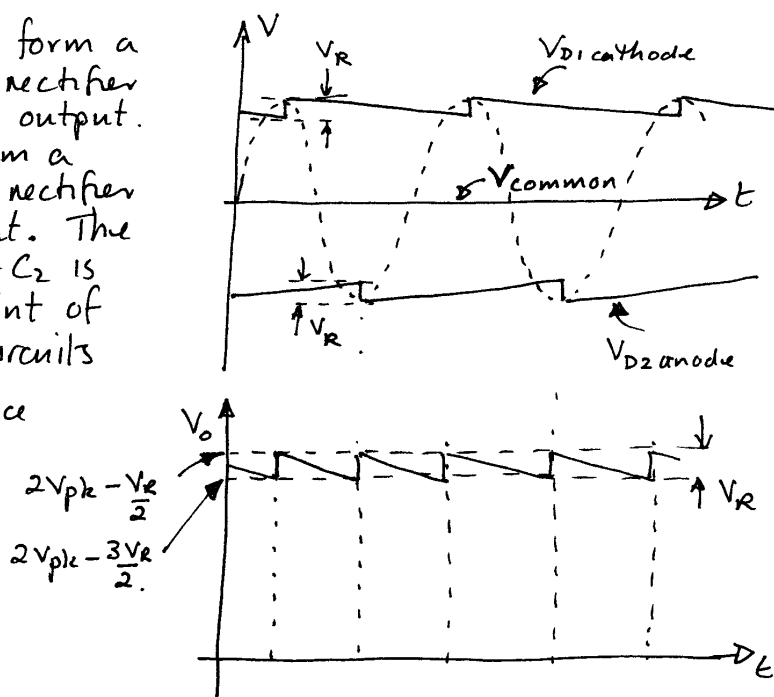 form a
rectifier
output.
m a
rectifier
t. The
C₂ is
int of
rcuits
ce
V
V_R
V_D1 cathode
V_common
t
V_R
V_D2 anode
V_o
2V_pk - V_R/2
2V_pk - 3V_R/2.
V_R
t